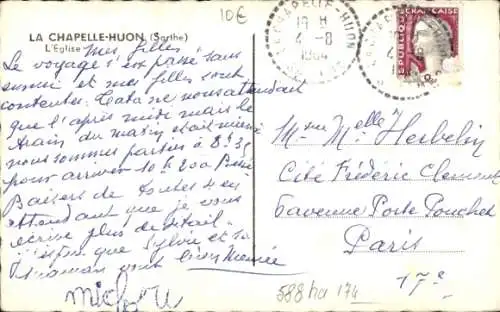 10€
LA CHAPELLE-HUON (Sarthe)
L'Eglise
Mes filles
Le voyage s'est passé sans
ennui et mes filles sont
contentes. Tata ne nous attendait
que l'après midi mais le
train du matin était mieux
nous sommes parties à 8h35
pour arriver 10h20
Baisers de toutes 4 en
attendant que je vous
écrive plus de détail.
J'espère que Sylvie et sa
maman vont bien
LA CHAPELLE-HUON
19 H
4 -8
1964
REPUBLIQUE FRANCAISE
Mme Melle Herbelin
Cité Frédéric Clement
6 avenue Porte Pouchet
Paris
17e
588 ha 174